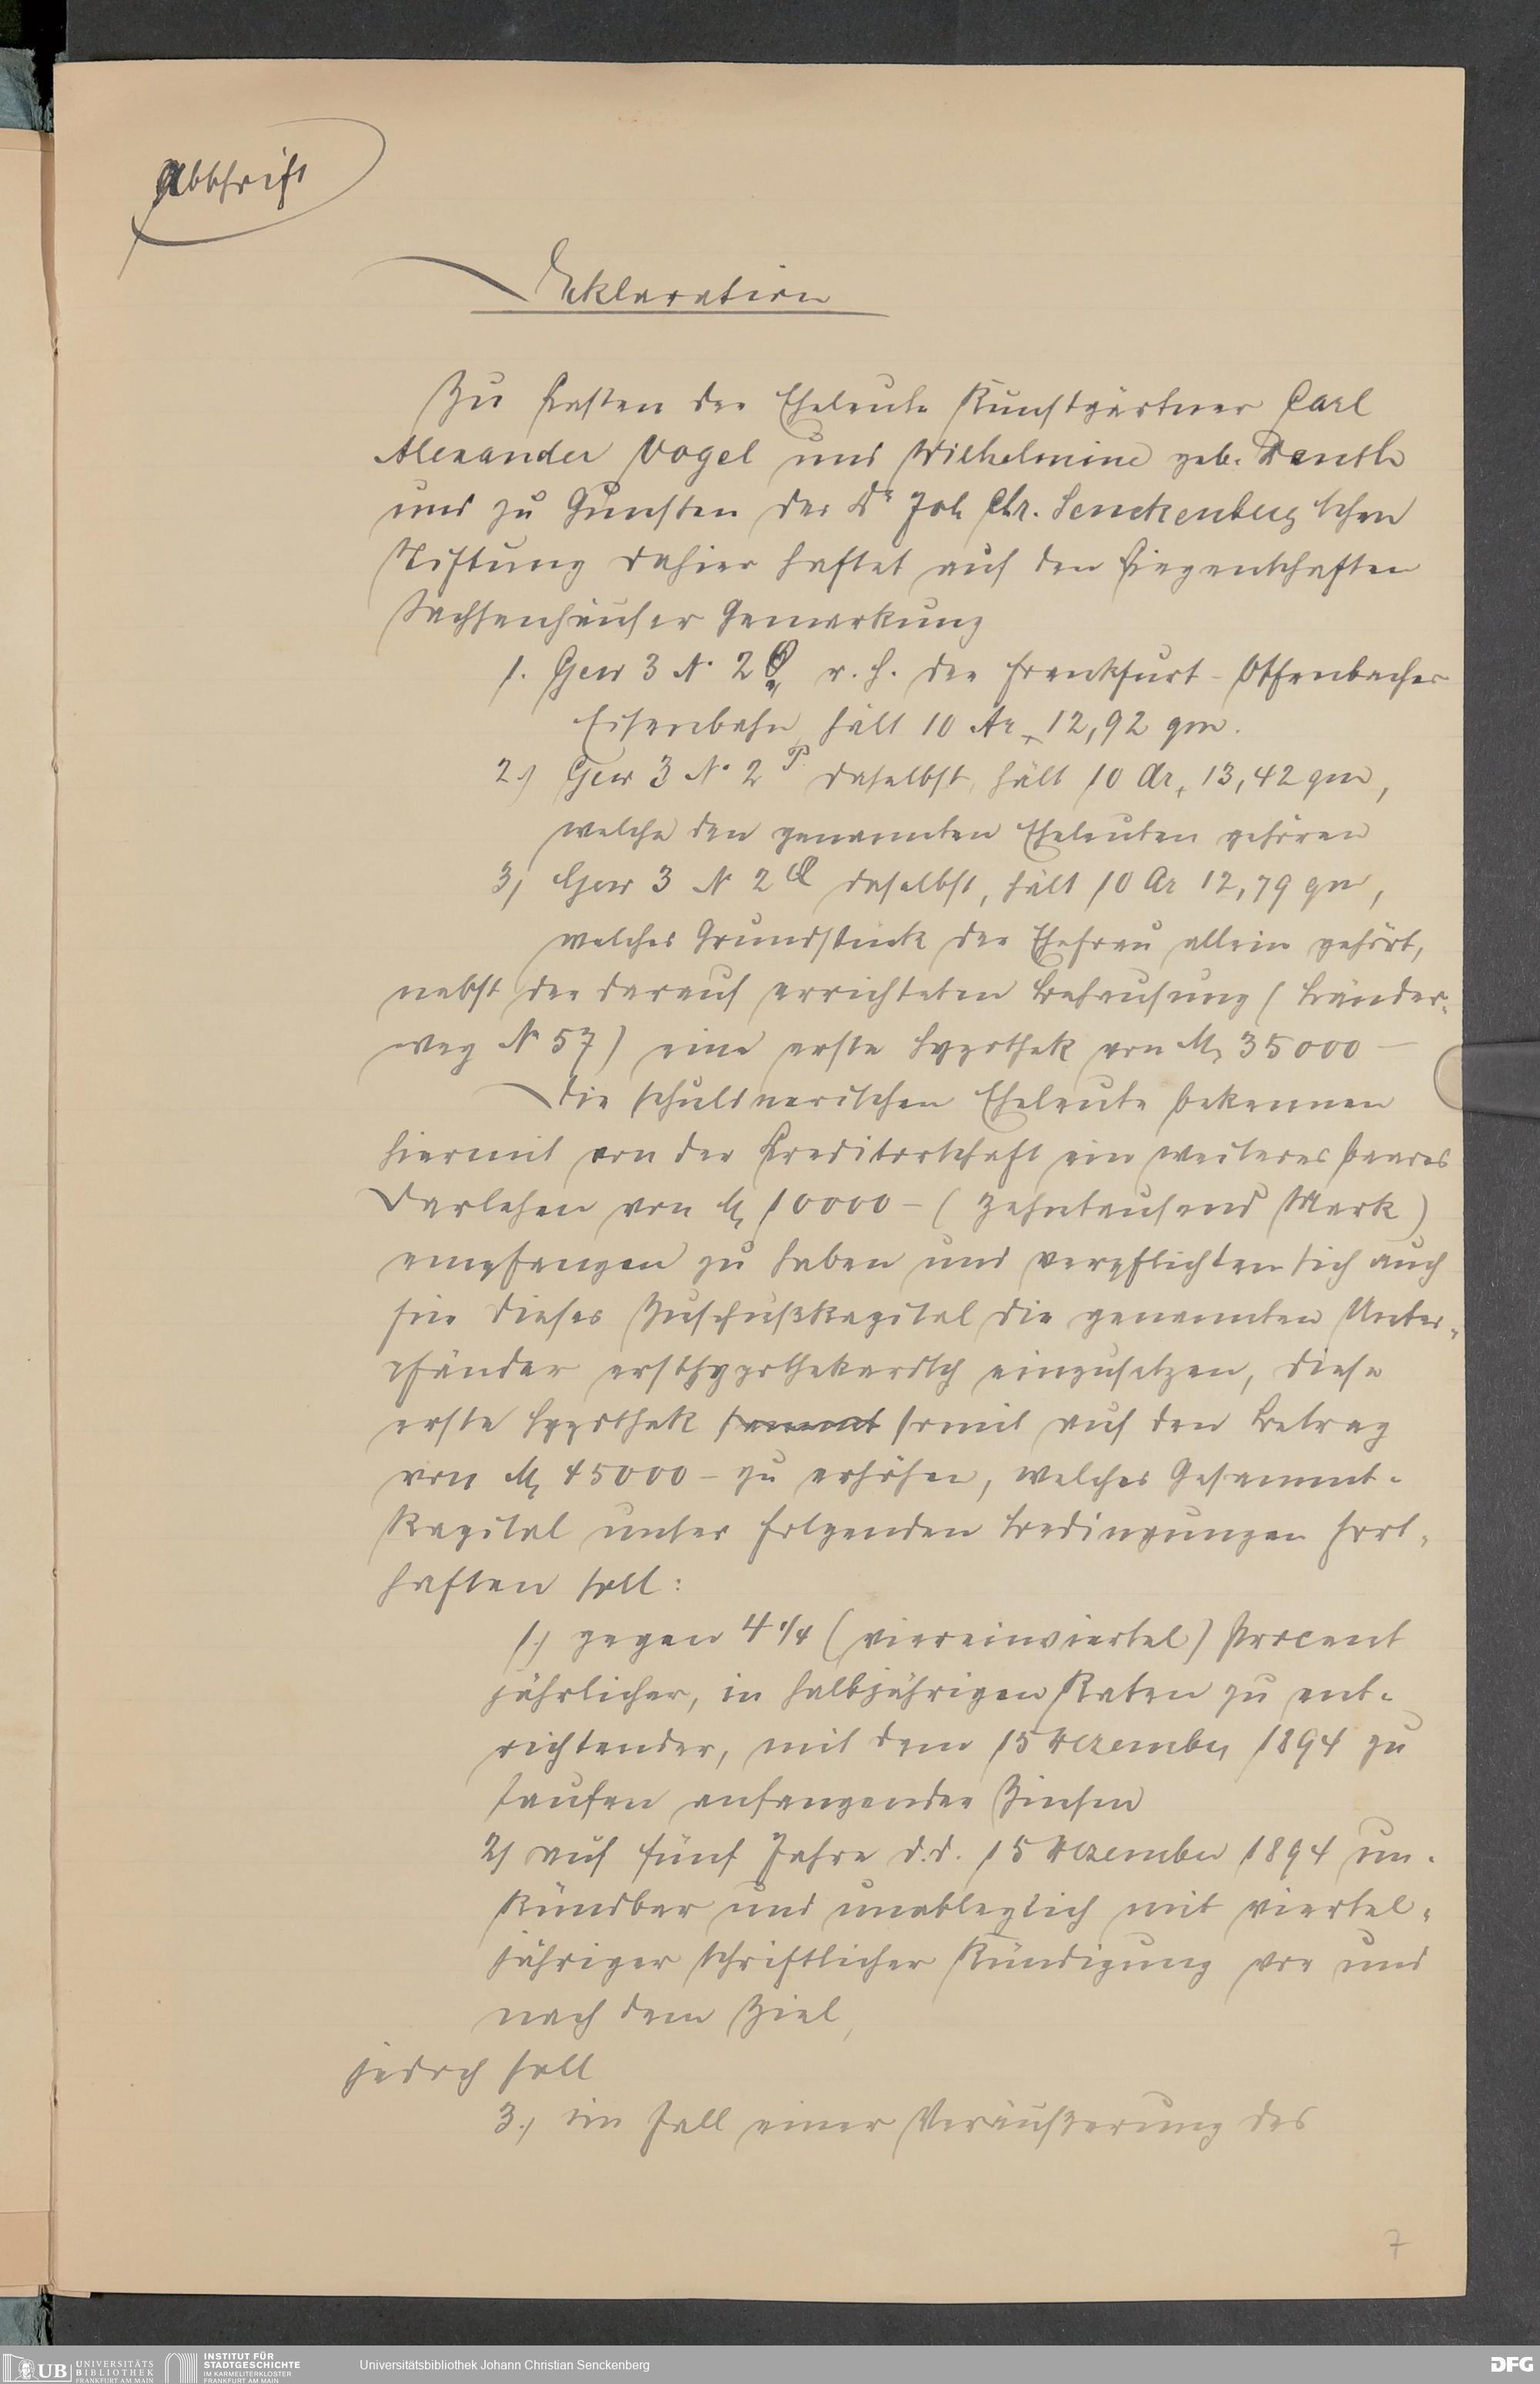 Abschrift
Deklaration
Zu Lasten der Eheleute Kunstgärtner Carl
Alexander Vogel und Wilhelmine geb.
und zu Gunsten der Dr Joh Chr. Senckenberg'schen
Stiftung dahier haftet auf den Liegenschaften
Sachsenhäuser Gemarkung
1. Gew 3 No 2 r. h. der Frankfurt-Offenbacher
Eisenbahn, hält 10 Ar 12,92 qm.
2.) Gew 3 No 2 P. daselbst, hält 10 Ar, 13,42 qm,
welche den genannten Eheleuten gehören
3) Gew 3 N 2 Q daselbst, hält 10 Ar 12,79 qm,
welches Grundstück der Ehefrau allein gehört,
nebst der darauf errichteten Behausung (
weg No 57) eine erste Hypothek von M 35000 —
Die schuldnerischen Eheleute bekennen
hiermit von der Creditorschaft ein weiteres baares
Darlehen von M 10000 – (Zehntausend Mark)
empfangen zu haben und verpflichten sich auch
für dieses Zuschußkapital die genannten Unter-
pfänder ersthypothekarisch einzusetzen, diese
erste Hypothek somit auf den Betrag
von M 45000 – zu erhöhen, welches Gesammt-
Kapital unter folgenden Bedingungen fort-
haften soll:
1.) gegen 4 1/4 (viereinviertel) Procent
jährlicher, in halbjährigen Raten zu ent-
richtender, mit dem 15 Dezember 1894 zu
laufen anfangender Zinsen
2) auf fünf Jahre d.d. 15 Dezember 1894 un-
kündbar und unableglich mit viertel-
jähriger schriftlicher Kündigung vor und
nach dem Ziel,
jedoch soll
3.) im Fall einer Veräußerung des
7
UB UNIVERSITÄTS
BIBLIOTHEK
FRANKFURT AM MAIN
INSTITUT FÜR
STADTGESCHICHTE
IM KARMELITERKLOSTER
FRANKFURT AM MAIN
Universitätsbibliothek Johann Christian Senckenberg
DFG